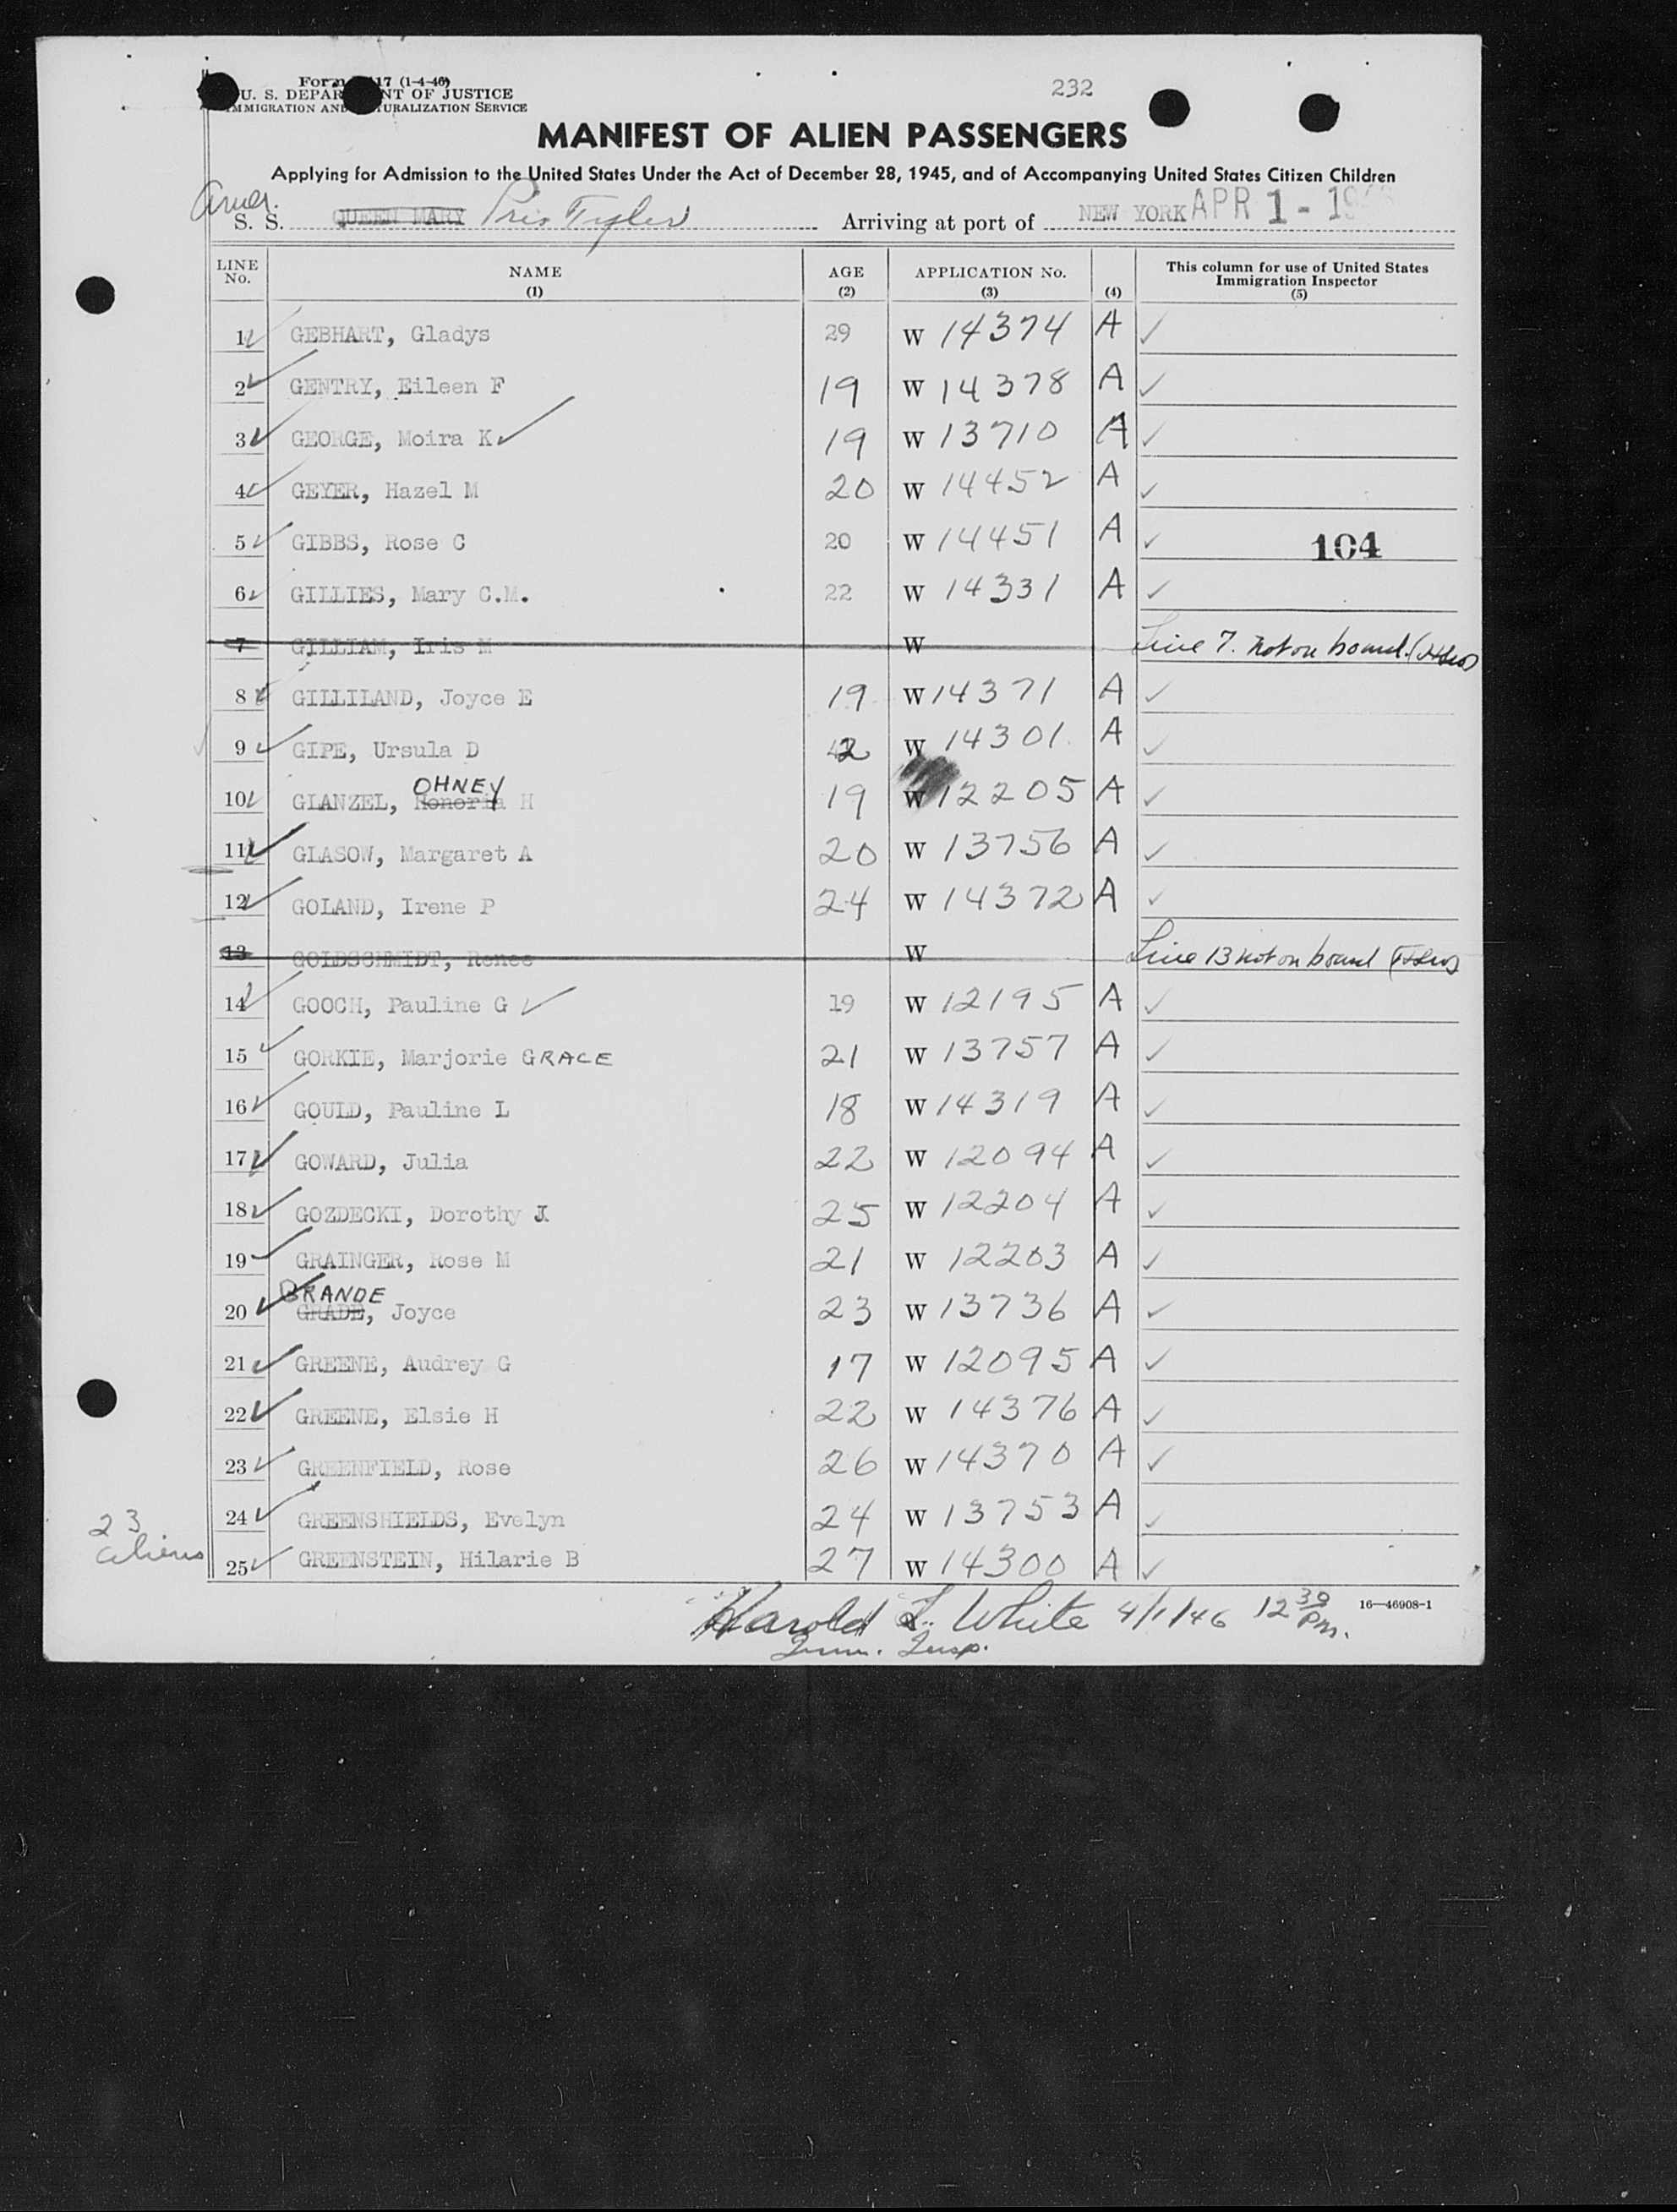 232
U. S. DEPAR NT OF JUSTICE
IMMIGRATION AND TURALIZATION SERVICE
MANIFEST OF ALIEN PASSENGERS
Applying for Admission to the United States Under the Act of December 28, 1945, and of Accompanying United States Citizen Children
Amer.
S. S. QUEEN MARY Pres Tyler Arriving at port of NEW YORK APR 1 - 1946
LINE No. NAME (1) AGE (2) APPLICATION No. (3) (4) This column for use of United States Immigration Inspector (5)
1 GEBHART, Gladys 29 W 14374 A ✓
2 GENTRY, Eileen F 19 W 14378 A ✓
3 GEORGE, Moira K ✓ 19 W 13710 A ✓
4 GEYER, Hazel M 20 W 14452 A ✓
5 GIBBS, Rose C 20 W 14451 A ✓ 104
6 GILLIES, Mary C.M. 22 W 14331 A ✓
7 GILLIAM, Iris M W Line 7. not on board.
8 GILLILAND, Joyce E 19 W 14371 A ✓
9 GIPE, Ursula D W 14301 A ✓
10 GLANZEL, Honoria OHNEY H 19 W 12205 A ✓
11 GLASOW, Margaret A 20 W 13756 A ✓
12 GOLAND, Irene P 24 W 14372 A ✓
13 GOLDSCHMIDT, Renee W Line 13 not on board
14 GOOCH, Pauline G ✓ 19 W 12195 A ✓
15 GORKIE, Marjorie GRACE 21 W 13757 A ✓
16 GOULD, Pauline L 18 W 14319 A ✓
17 GOWARD, Julia 22 W 12094 A ✓
18 GOZDECKI, Dorothy J. 25 W 12204 A ✓
19 GRAINGER, Rose M 21 W 12203 A ✓
BRANDE
20 GRADE, Joyce 23 W 13736 A ✓
21 GREENE, Audrey G 17 W 12095 A ✓
22 GREENE, Elsie H 22 W 14376 A ✓
23 GREENFIELD, Rose 26 W 14370 A ✓
24 GREENSHIELDS, Evelyn 24 W 13753 A ✓
25 GREENSTEIN, Hilarie B 27 W 14300 A ✓
23
aliens
Harold L. White 4/1/46 12 30 Pm.
Imm. Insp.
16—46908-1